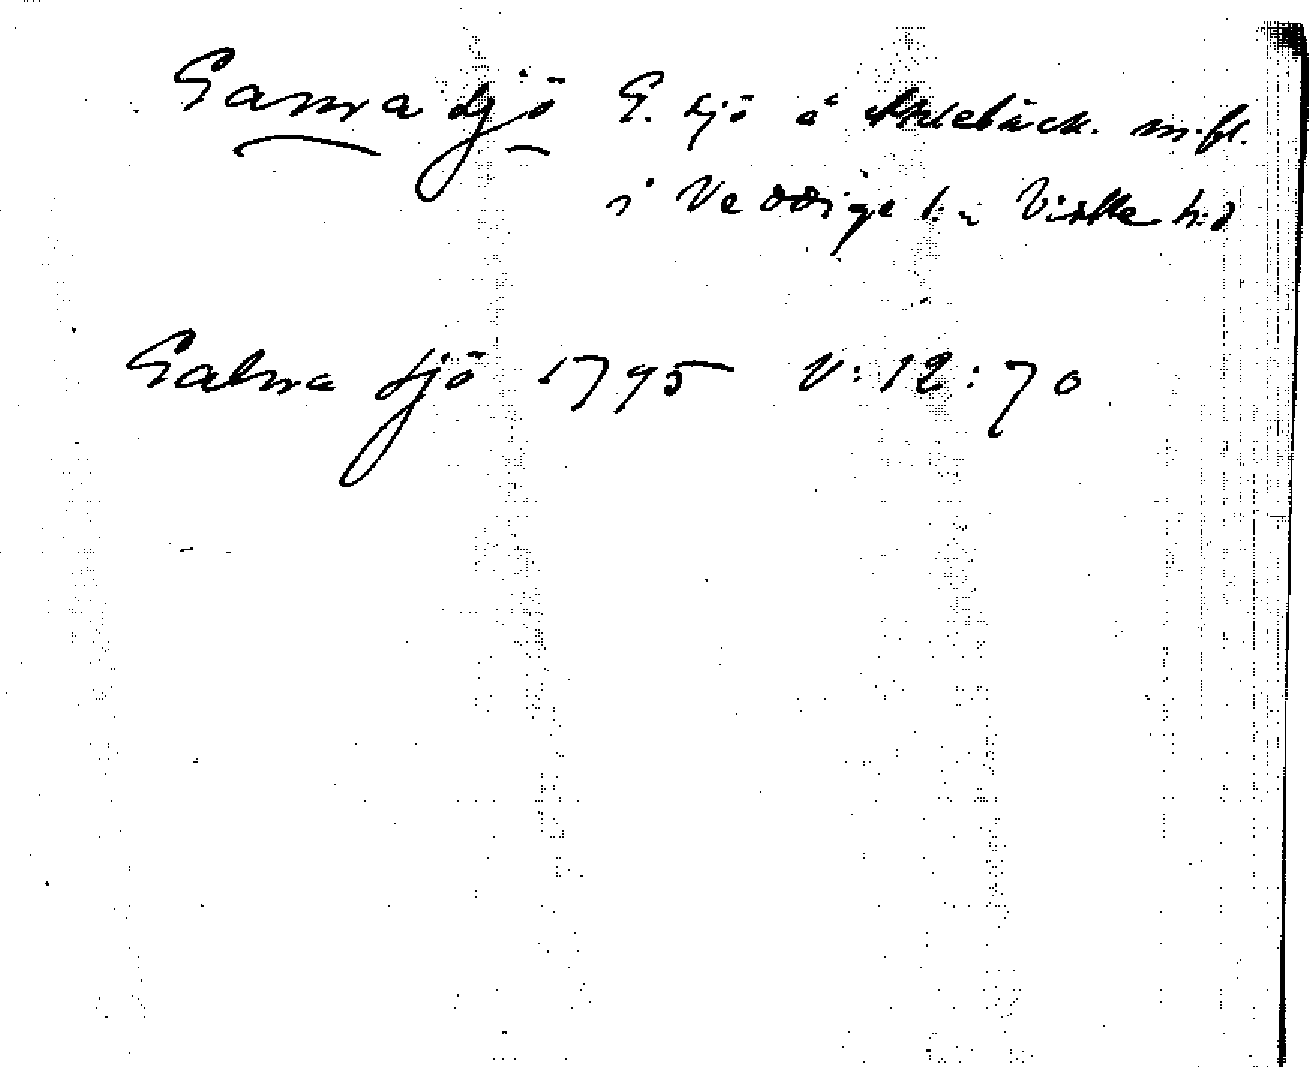 Gamra sjö G. sjö å Akleback. m. fl.
i Veddige s:n Viske h:d
Galna sjö 1795 V:12:70